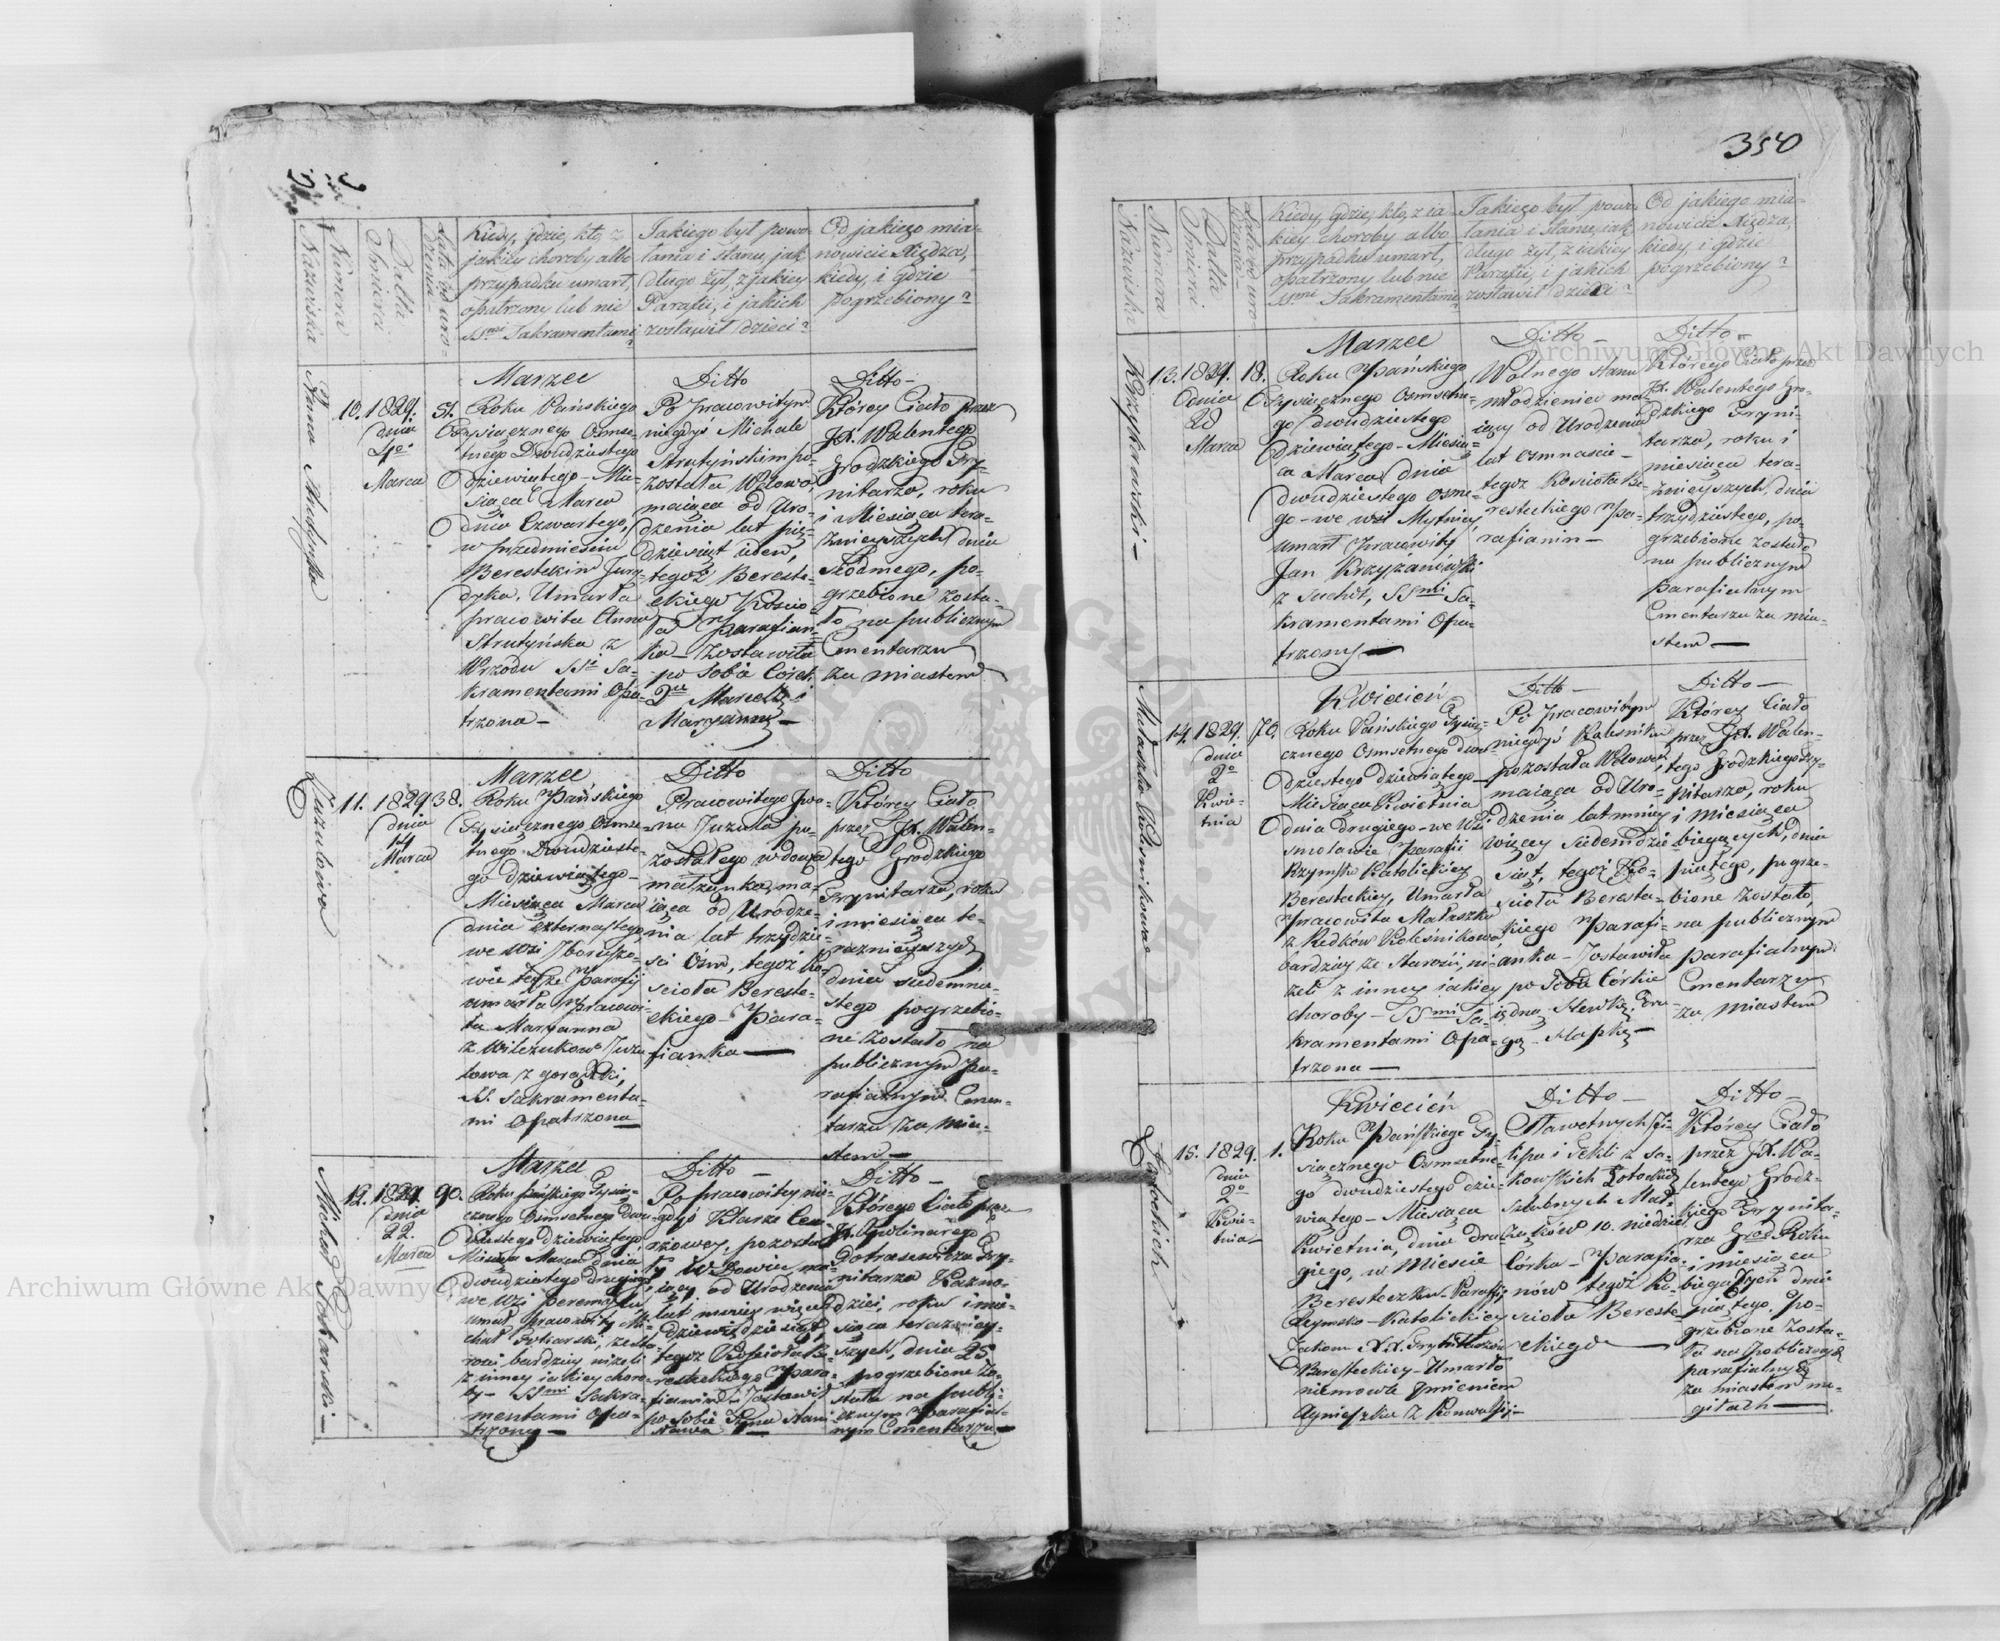 350
Nazwiska
Numera
Datta Smierci
Lata od urodzenia
Kiedy, gdzie, kto, z
jakiey choroby albo
przypadku umarł,
opatrzony lub nie
SSmi Sakramentami?
Jakiego był powo-
łania i stanu, jak
długo żył, z jakiey
Parafii, i jakich
zostawił dzieci?
Od jakiego mia-
nowicie Xiędza,
kiedy, i gdzie
pogrzebiony?
Anna Strutyńska
10.
1829.
dnia
4go
Marca
51.
Marzec
Roku Pańskiego
Tysiącznego Osmse-
tnego Dwudziestego
dziewiątego Mie-
siąca Marca
dnia Czwartego,
w przedmieściu
Beresteckim Jury-
dyka, Umarła
pracowita Anna
Strutyńska z
Wrzodu SSi Sa-
kramentami Opa-
trzona
Ditto
Po pracowitym
niegdyś Michale
Strutyńskim po-
została Wdowa,
maiąca od Uro-
dzenia lat pięć-
dziesiąt ieden,
tegoż Bereste-
ckiego Kościo-
ła Parafian-
ka — Zostawiła
po sobie Córek
2u Marcellę i
Maryannę
Ditto
Którey Ciało przez
JX. Walentego
Grodzkiego Try-
nitarza, roku
i Miesiąca tera-
źnieyszych dnia
siódmego, po-
grzebione zosta-
ło na publicznym
Cmentarzu
za miastem
Juzulowa
11.
1829
dnia
14
Marca
38.
Marzec
Roku Pańskiego
Tysiącznego Osmse-
tnego Dwudzieste-
go dziewiątego
Miesiąca Marca
dnia czternastego,
we wsi
wie teyże Parafij
umarła pracowi-
ta Maryanna
z Wilczuków Juzu-
lowa z gorączki,
SS. Sakramenta-
mi Opatrzona
Ditto
Pracowitego Jwa-
na Juzula po-
zostałego wdowca
małżonka, ma-
iąca od Urodze-
nia lat trzydzie-
ści Osm, tegoż Ko-
ścioła Bereste-
ckiego Para-
fianka
Ditto
Którey Ciało
przez JX. Walen-
tego Grodzkiego
Trynitarza, roku
i miesiąca te-
raznieyszych
dnia siedemna-
stego pogrzebio-
ne Zostało na
publicznym Pa-
rafialnym Cmen-
tarzu za mia-
stem
Michał Potharski
12.
1829.
dnia
22.
Marca
90.
Marzec
Roku Pańskiego Tysią-
cznego Osmsetnego Dwu-
dziestego dziewiątego
Miesiąca Marca dnia
dwudziestego drugiego,
we wsi Peremylu,
umarł pracowity Mi-
chał Potharski, ze sta-
rości bardziey niżeli
z inney iakiey choro-
by — SSmi Sakra-
mentami Opa-
trzony
Ditto
Po pracowitey nie-
gdyś Klarze
pozosta-
ły Wdowiec, ma-
iący od Urodzenia
lat mniey więcey
dziewięćdziesiąt,
tegoż Kościoła Be-
resteckiego Para-
fianin — Zostawił
po sobie Syna Stani-
sława 1
Ditto
Którego Ciało przez
JX. Apolinarego
Try-
nitarza Kazno-
dzieię, roku i mie-
siąca teraźniey-
szych, dnia 25
pogrzebione zo-
stało na publi-
cznym Parafial-
nym Cmentarzu
Nazwiska
Numera
Datta Smierci
Lata od uro-
dzenia
Kiedy, gdzie, kto, z ia-
kiey choroby albo
przypadku umarł,
opatrzony lub nie
SSmi Sakramentami?
Jakiego był powo-
łania i stanu, jak
długo żył, z iakiey
Parafii, i jakich
zostawił dzieci?
Od jakiego mia-
nowicie Xiędza,
kiedy, i gdzie
pogrzebiony?
Krzyżanowski
13.
1829.
dnia
28
Marca
18.
Marzec
Roku Pańskiego
Tysiącznego Osmsetne-
go dwudziestego
dziewiątego Miesią-
ca Marca dnia
dwudziestego osme-
go we wsi Mytnicy,
umarł pracowity
Jan Krzyżanowski
z Suchot, SSmi Sa-
kramentami Opa-
trzony
Ditto
Wolnego stanu
młodzieniec ma-
iący od Urodzenia
lat osmnaście
tegoż Kościoła Be-
resteckiego Pa-
rafianin
Ditto
Którego Ciało przez
JX. Walentego Gro-
dzkiego Tryni-
tarza, roku i
miesiąca tera-
źnieyszych, dnia
trzydziestego, po-
grzebione zostało
na publicznym
Parafialnym
Cmentarzu za mia-
stem
Małaszka Koleśnikowa
14.
1829.
dnia
2o
Kwie-
tnia
70.
Kwiecień
Roku Pańskiego Tysią-
cznego Osmsetnego dwu-
dziestego dziewiątego
Miesiąca Kwietnia
dnia drugiego we Wsi
Smolawie Parafii
Rzymsko Katolickiey
Beresteckiey, Umarła
Pracowita Małaszka
z Redków Koleśnikowa
bardziey ze starości, ni-
żeli z inney iakiey
choroby — SSmi Sa-
kramentami Opa-
trzona
Ditto
Po pracowitym
niegdyś Koleśniku
pozostała Wdowa,
maiąca od Uro-
dzenia lat mniey
więcey siedemdzie-
siąt, tegoż Ko-
ścioła Bereste-
ckiego Parafi-
anka — Zostawiła
po Sobie Córkie
iedną Hewkę, Dru-
gą Hapkę
Ditto
Którey Ciało
przez JX. Walen-
tego Grodzkiego Try-
nitarza, roku
i miesiąca
bieżących, dnia
piątego, pogrze-
bione zostało,
na publicznym
parafialnym
Cmentarzu
za miastem
Łotockich
15.
1829.
dnia
2o
Kwie-
tnia
1.
Kwiecień
Roku Pańskiego Ty-
siącznego Osmsetne-
go dwudziestego dzie-
wiątego Miesiąca
Kwietnia, dnia dru-
giego, w Mieście
Beresteczku Parafij
Rzymsko Katolickiey
Jakom XX. Trynitarzów
Beresteckiey Umarło
niemowle Imieniem
Agnieszka z Konwulsij
Ditto
Sławetnych Fi-
lipa i Tekli z Sa-
kowskich Łotockich
Szlubnych Mał-
żonków 10. niedziel
Córka Parafia-
nów tegoż Ko-
ścioła Bereste-
ckiego
Ditto
Którey Ciało
przez JX. Wa-
lentego Grodz-
kiego Trynita-
rza Roku
i miesiąca
bieżących dnia
piątego, po-
grzebione zosta-
ło na publicznych
parafialnych
za miastem mo-
giłach
Archiwum Główne Akt Dawnych
Archiwum Główne Akt Dawnych